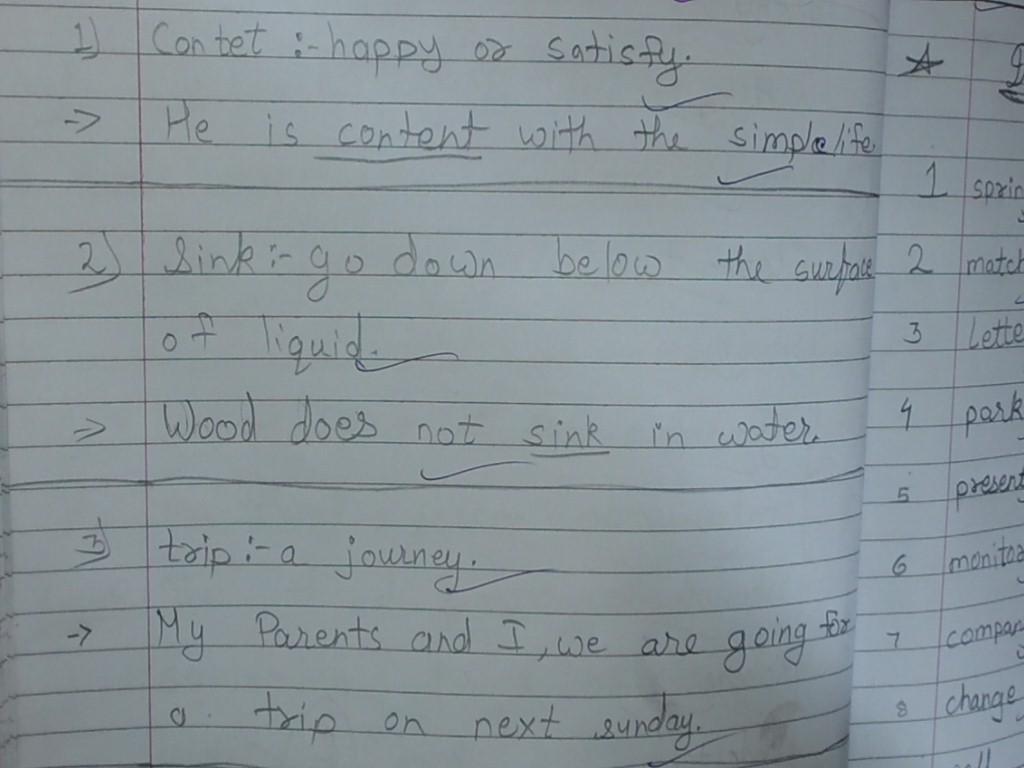 1) Contet :- happy or satisfy.
-> He is content with the simple life
2) Sink :- go down below the surface
of liquid.
-> Wood does not sink in water.
3) trip :- a journey.
-> My Parents and I, we are going for
a trip on next sunday.
1
2
3
4 park
5 present
6 monitor
7
8 change